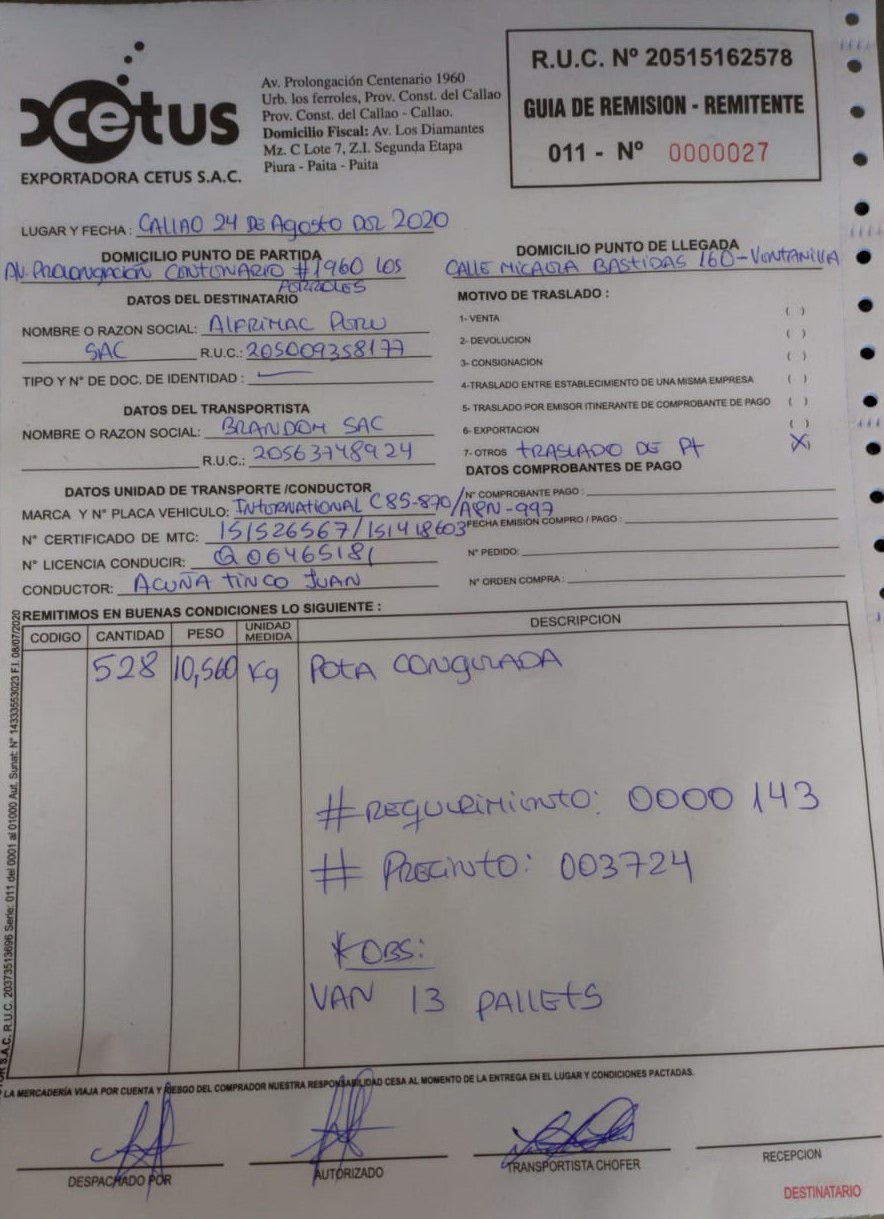 Cetus
EXPORTADORA CETUS S.A.C.
Av. Prolongación Centenario 1960
Urb. los ferroles, Prov. Const. del Callao
Prov. Const. del Callao - Callao.
Domicilio Fiscal: Av. Los Diamantes
Mz. C Lote 7, Z.I. Segunda Etapa
Piura - Paita - Paita
R.U.C. Nº 20515162578
GUIA DE REMISION - REMITENTE
011 - Nº 0000027
LUGAR Y FECHA : CALLAO 24 DE Agosto DEL 2020
DOMICILIO PUNTO DE PARTIDA
AV. PROLONGACIÓN CENTENARIO #1960 LOS
FERROLES
DOMICILIO PUNTO DE LLEGADA
CALLE MICAELA BASTIDAS 160-VENTANILLA
DATOS DEL DESTINATARIO
NOMBRE O RAZON SOCIAL: ALPRIMAC PERU
SAC R.U.C.: 205009358177
TIPO Y N° DE DOC. DE IDENTIDAD : —
MOTIVO DE TRASLADO :
1- VENTA ( )
2- DEVOLUCION ( )
3- CONSIGNACION ( )
4-TRASLADO ENTRE ESTABLECIMIENTO DE UNA MISMA EMPRESA ( )
5- TRASLADO POR EMISOR ITINERANTE DE COMPROBANTE DE PAGO ( )
6- EXPORTACION ( )
7- OTROS TRASLADO DE Pt (X)
DATOS DEL TRANSPORTISTA
NOMBRE O RAZON SOCIAL: BRANDOM SAC
R.U.C.: 20563748924
DATOS COMPROBANTES DE PAGO
N° COMPROBANTE PAGO :
FECHA EMISION COMPRO / PAGO :
N° PEDIDO:
N° ORDEN COMPRA :
DATOS UNIDAD DE TRANSPORTE /CONDUCTOR
MARCA Y N° PLACA VEHICULO: INTERNATIONAL C85-870/A8N-997
N° CERTIFICADO DE MTC: 151526567/151418603
N° LICENCIA CONDUCIR: Q06465181
CONDUCTOR: ACUÑA TINCO JUAN
REMITIMOS EN BUENAS CONDICIONES LO SIGUIENTE :
CODIGO CANTIDAD PESO UNIDAD MEDIDA DESCRIPCION
528 10,560 Kg POTA CONGELADA
#REQUERIMIENTO: 0000143
# PRECINTO: 003724
* OBS:
VAN 13 PALLETS
S.A.C. R.U.C. 20373513696 Serie: 011 del 0001 al 01000 Aut. Sunat: N° 14333553023 F.I. 08/07/2020
LA MERCADERÍA VIAJA POR CUENTA Y RIESGO DEL COMPRADOR NUESTRA RESPONSABILIDAD CESA AL MOMENTO DE LA ENTREGA EN EL LUGAR Y CONDICIONES PACTADAS.
DESPACHADO POR
AUTORIZADO
TRANSPORTISTA CHOFER
RECEPCION
DESTINATARIO